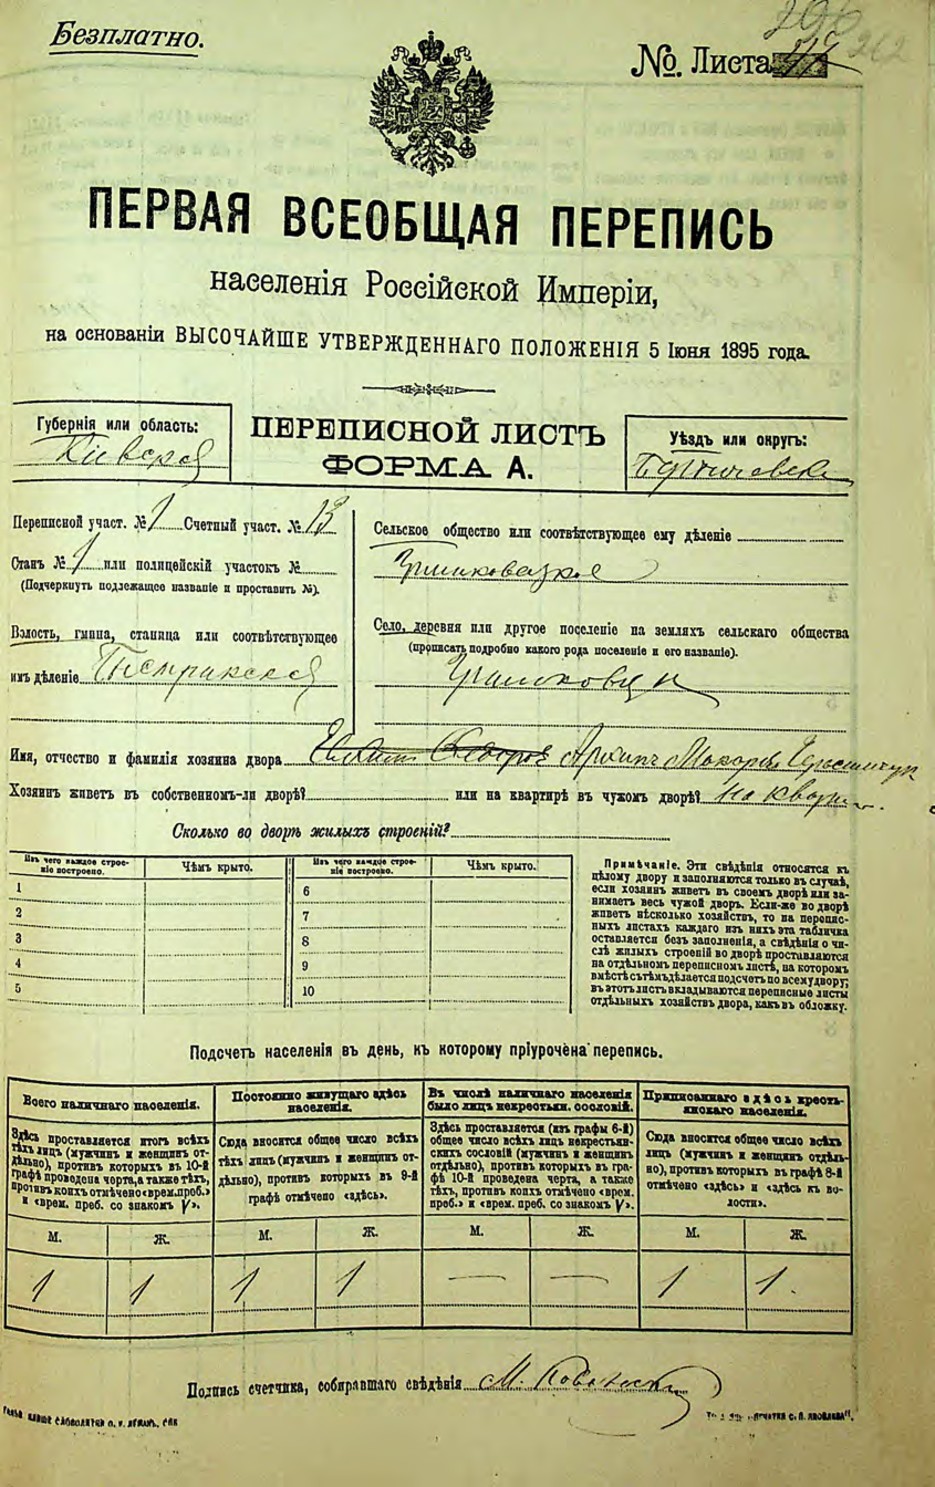 Безплатно.
№. Листа
ПЕРВАЯ ВСЕОБЩАЯ ПЕРЕПИСЬ
населенія Россійской Имперіи,
на основаніи ВЫСОЧАЙШЕ УТВЕРЖДЕННАГО ПОЛОЖЕНІЯ 5 Іюня 1895 года.
Губернія или область:
Кіевская
ПЕРЕПИСНОЙ ЛИСТЪ
ФОРМА А.
Уѣздъ или округъ:
Переписной участ. № 1 Счетный участ. № 13
Станъ № 1 или полицейскій участокъ №
(Подчеркнуть подлежащее названіе и проставить №).
Волость, гмина, станица или соотвѣтствующее
имъ дѣленіе
Сельское общество или соотвѣтствующее ему дѣленіе
Село, деревня или другое поселеніе на земляхъ сельскаго общества
(прописать подробно какого рода поселеніе и его названіе).
Имя, отчество и фамилія хозяина двора Архипъ Макаровъ
Хозяинъ живетъ въ собственномъ-ли дворѣ? или на квартирѣ въ чужомъ дворѣ? на кварти
Сколько во дворѣ жилыхъ строеній?
Изъ чего каждое строеніе построено.
Чѣмъ крыто.
Изъ чего каждое строеніе построено.
Чѣмъ крыто.
1
2
3
4
5
6
7
8
9
10
Примѣчаніе. Эти свѣдѣнія относятся къ
цѣлому двору и заполняются только въ случаѣ,
если хозяинъ живетъ въ своемъ дворѣ или за-
нимаетъ весь чужой дворъ. Если-же во дворѣ
живетъ нѣсколько хозяйствъ, то на перепис-
ныхъ листахъ каждаго изъ нихъ эта табличка
оставляется безъ заполненія, а свѣдѣнія о чи-
слѣ жилыхъ строеній во дворѣ проставляются
на отдѣльномъ переписномъ листѣ, на которомъ
вмѣстѣ съ тѣмъ дѣлается подсчетъ по всему двору;
въ этотъ листъ вкладываются переписные листы
отдѣльныхъ хозяйствъ двора, какъ въ обложку.
Подсчетъ населенія въ день, къ которому пріурочена перепись.
Всего наличнаго населенія.
Здѣсь проставляется итогъ всѣхъ
тѣхъ лицъ (мужчинъ и женщинъ от-
дѣльно), противъ которыхъ въ 10-й
графѣ проведена черта, а также тѣхъ,
противъ коихъ отмѣчено «врем. преб.»
и «врем. преб. со знакомъ V».
Постоянно живущаго здѣсь
населенія.
Сюда вносится общее число всѣхъ
тѣхъ лицъ (мужчинъ и женщинъ от-
дѣльно), противъ которыхъ въ 9-й
графѣ отмѣчено «здѣсь».
Въ числѣ наличнаго населенія
было лицъ некрестьян. сословій.
Здѣсь проставляется (изъ графы 6-й)
общее число всѣхъ лицъ некрестьян-
скихъ сословій (мужчинъ и женщинъ
отдѣльно), противъ которыхъ въ гра-
фѣ 10-й проведена черта, а также
тѣхъ, противъ коихъ отмѣчено «врем.
преб.» и «врем. преб. со знакомъ V».
Приписаннаго здѣсь кресть-
янскаго населенія.
Сюда вносится общее число всѣхъ
лицъ (мужчинъ и женщинъ отдѣль-
но), противъ которыхъ въ графѣ 8-й
отмѣчено «здѣсь» и «здѣсь къ во-
лости».
М. Ж. М. Ж. М. Ж. М. Ж.
1 1 1 1 — — 1 1.
Подпись счетчика, собиравшаго свѣдѣнія М.